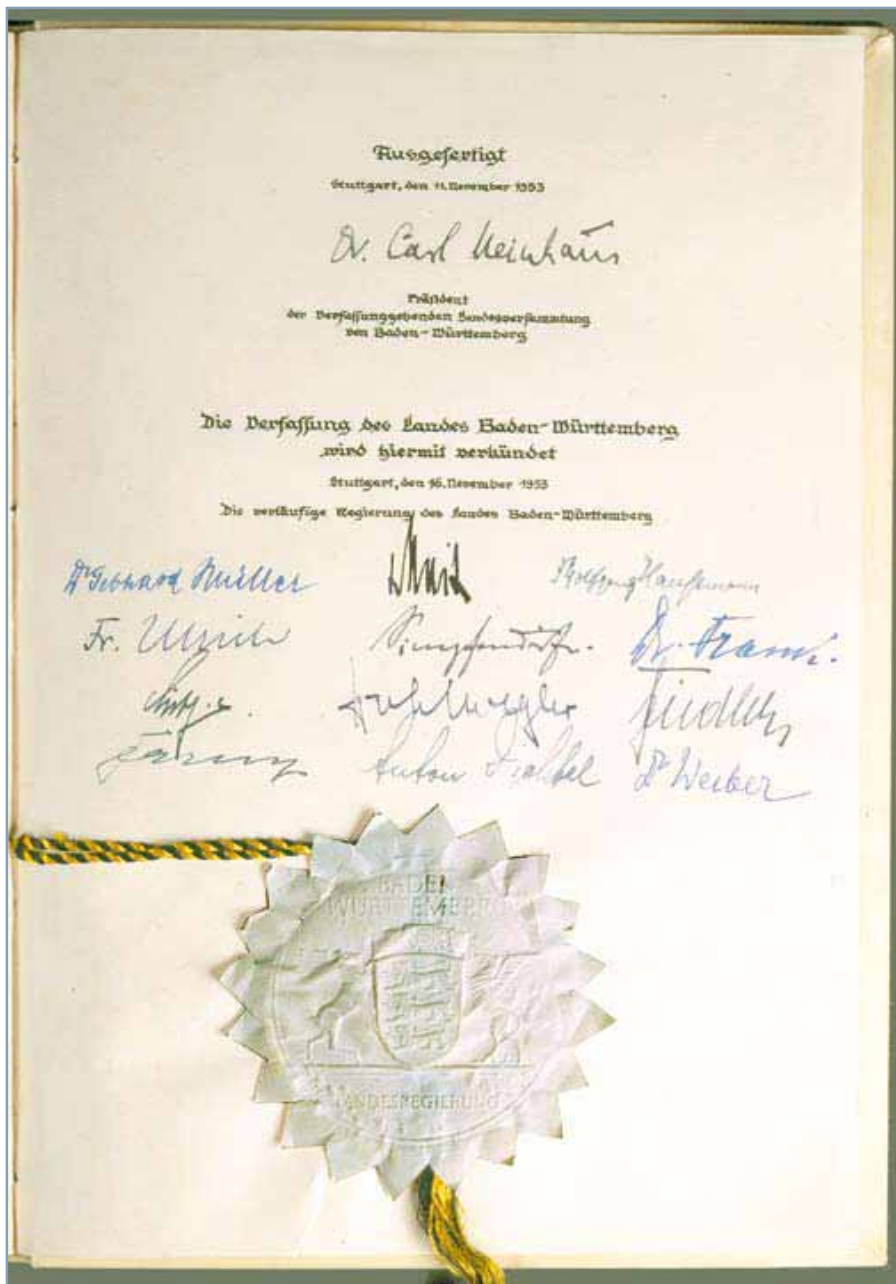 Ausgefertigt
Stuttgart, den 11. November 1953
Dr. Carl Neinhaus
Präsident
der Verfassunggebenden Landesversammlung
von Baden-Württemberg
Die Verfassung des Landes Baden-Württemberg
wird hiermit verkündet
Stuttgart, den 16. November 1953
Die vorläufige Regierung des Landes Baden-Württemberg
Dr Gebhard Müller Wolfgang Haußmann
Fr. Ulrich Simpfendörfer. Dr. Frank.
Fiedler
Anton Dichtel Dr Werber
BADEN
WÜRTTEMBERG
LANDESREGIERUNG